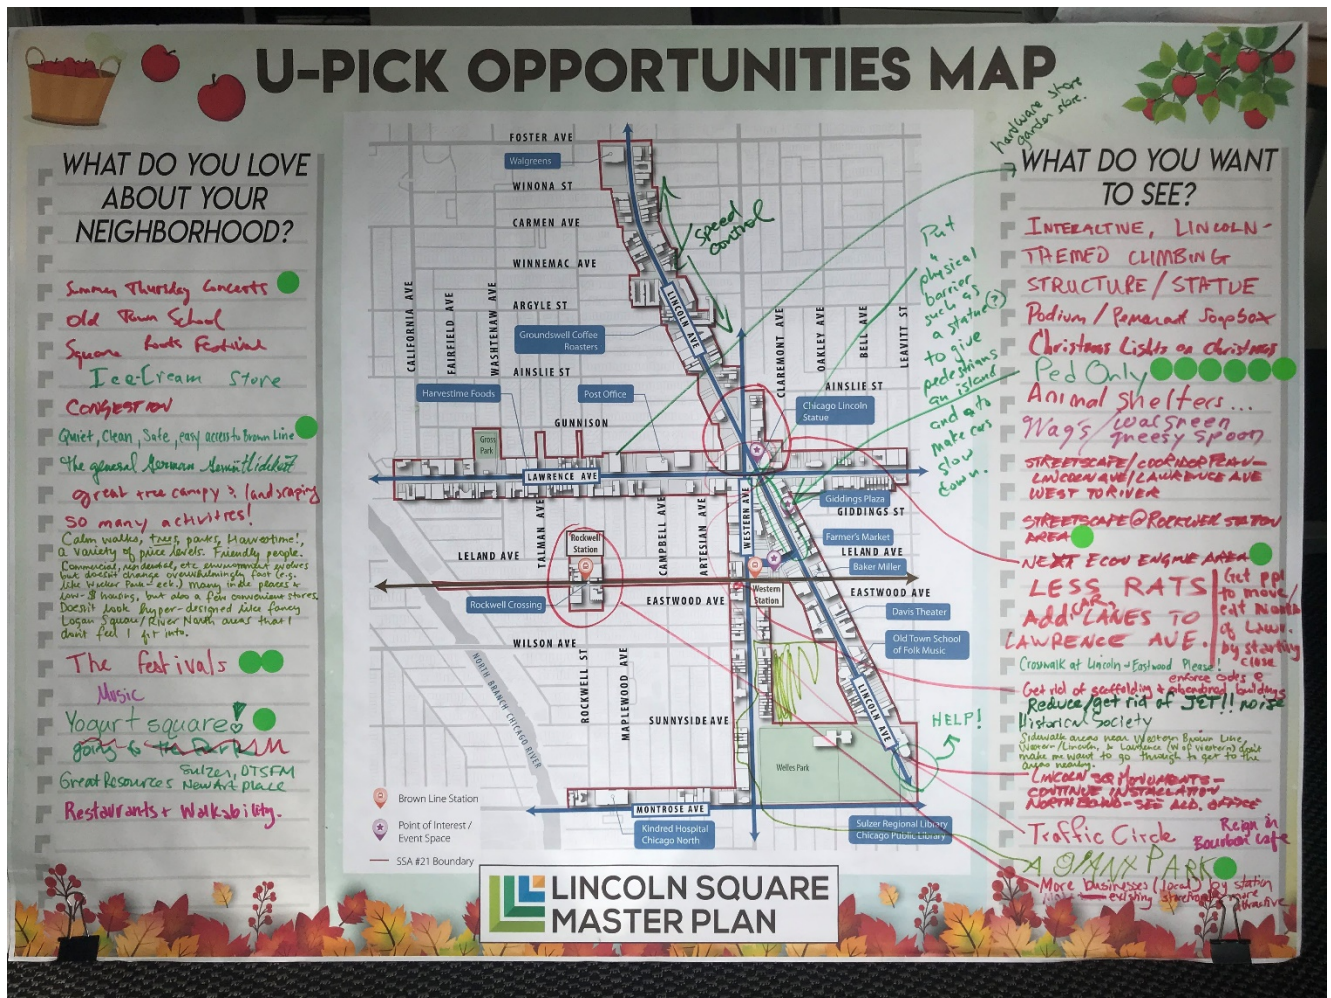 U-PICK OPPORTUNITIES MAP
WHAT DO YOU LOVE
ABOUT YOUR
NEIGHBORHOOD?
Summer Thursday Concerts
Old Town School
Square Roots Festival
Ice-Cream Store
CONGESTION
Quiet, Clean, Safe, easy access to Brown Line
The general German
great tree canopy & landscaping
so many activities!
Calm walks, trees, parks, Harvestime!,
a variety of price levels. Friendly people.
Commercial, residential, etc environment evolves
but doesn't change overwhelmingly fast (e.g.
like Wicker Park - eek.) many indie places &
low-$ housing, but also a few convenient stores.
Doesn't look hyper-designed like fancy
Logan Square/River North areas that I
don't feel I fit into.
The festivals
Music
Yogurt square!
going to the
Sulzer, OTSFM
Great Resources New Art place
Restaurants + Walkability.
FOSTER AVE
Walgreens
WINONA ST
CARMEN AVE
WINNEMAC AVE
ARGYLE ST
Groundswell Coffee
Roasters
AINSLIE ST
CALIFORNIA AVE
FAIRFIELD AVE
WASHTENAW AVE
LINCOLN AVE
Speed
control
CLAREMONT AVE
OAKLEY AVE
BELL AVE
LEAVITT ST
AINSLIE ST
Harvestime Foods
Post Office
Chicago Lincoln
Statue
GUNNISON
Gross
Park
LAWRENCE AVE
Giddings Plaza
GIDDINGS ST
WESTERN AVE
TALMAN AVE
CAMPBELL AVE
ARTESIAN AVE
Rockwell
Station
Farmer's Market
LELAND AVE
LELAND AVE
Baker Miller
Western
Station
Rockwell Crossing
EASTWOOD AVE
EASTWOOD AVE
Davis Theater
WILSON AVE
Old Town School
of Folk Music
NORTH BRANCH CHICAGO RIVER
ROCKWELL ST
MAPLEWOOD AVE
SUNNYSIDE AVE
LINCOLN AVE
HELP!
Welles Park
MONTROSE AVE
Kindred Hospital
Chicago North
Sulzer Regional Library
Chicago Public Library
Brown Line Station
Point of Interest /
Event Space
SSA #21 Boundary
LINCOLN SQUARE
MASTER PLAN
hardware store
garden store.
Put
a
physical
barrier
such as
a statue(?)
to give
pedestrians
an island
and to
make cars
slow
down.
WHAT DO YOU WANT
TO SEE?
INTERACTIVE, LINCOLN-
THEMED CLIMBING
STRUCTURE/STATUE
Podium/Permanent Soapbox
Christmas Lights on Christmas
Ped Only
Animal shelters...
Wag's/walgreen
greesy spoon
STREETSCAPE/CORRIDOR PLAN-
LINCOLN AVE/LAWRENCE AVE
WEST TO RIVER
STREETSCAPE @ ROCKWELL STATION
AREA
NEXT ECON ENGINE AREA
LESS RATS
Add CAR LANES TO
LAWRENCE AVE.
Get ppl
to move/
eat North
of Lawr.
by starting
close
Crosswalk at Lincoln + Eastwood Please!
enforce codes @
Get rid of scaffolding + abandoned buildings
Reduce/get rid of JET!! noise
Historical Society
Sidewalk areas near Western Brown Line,
Western/Lincoln, & Lawrence (W of Western) don't
make me want to go through to get to the
areas nearby.
LINCOLN SQ MONUMENTS-
CONTINUE INSTALLATION
NORTHBOUND-SEE ALD. OFFICE
Traffic Circle
Reign in
Bourbon Cafe
A GIANT PARK
More businesses (local) by station
make existing storefronts more attractive